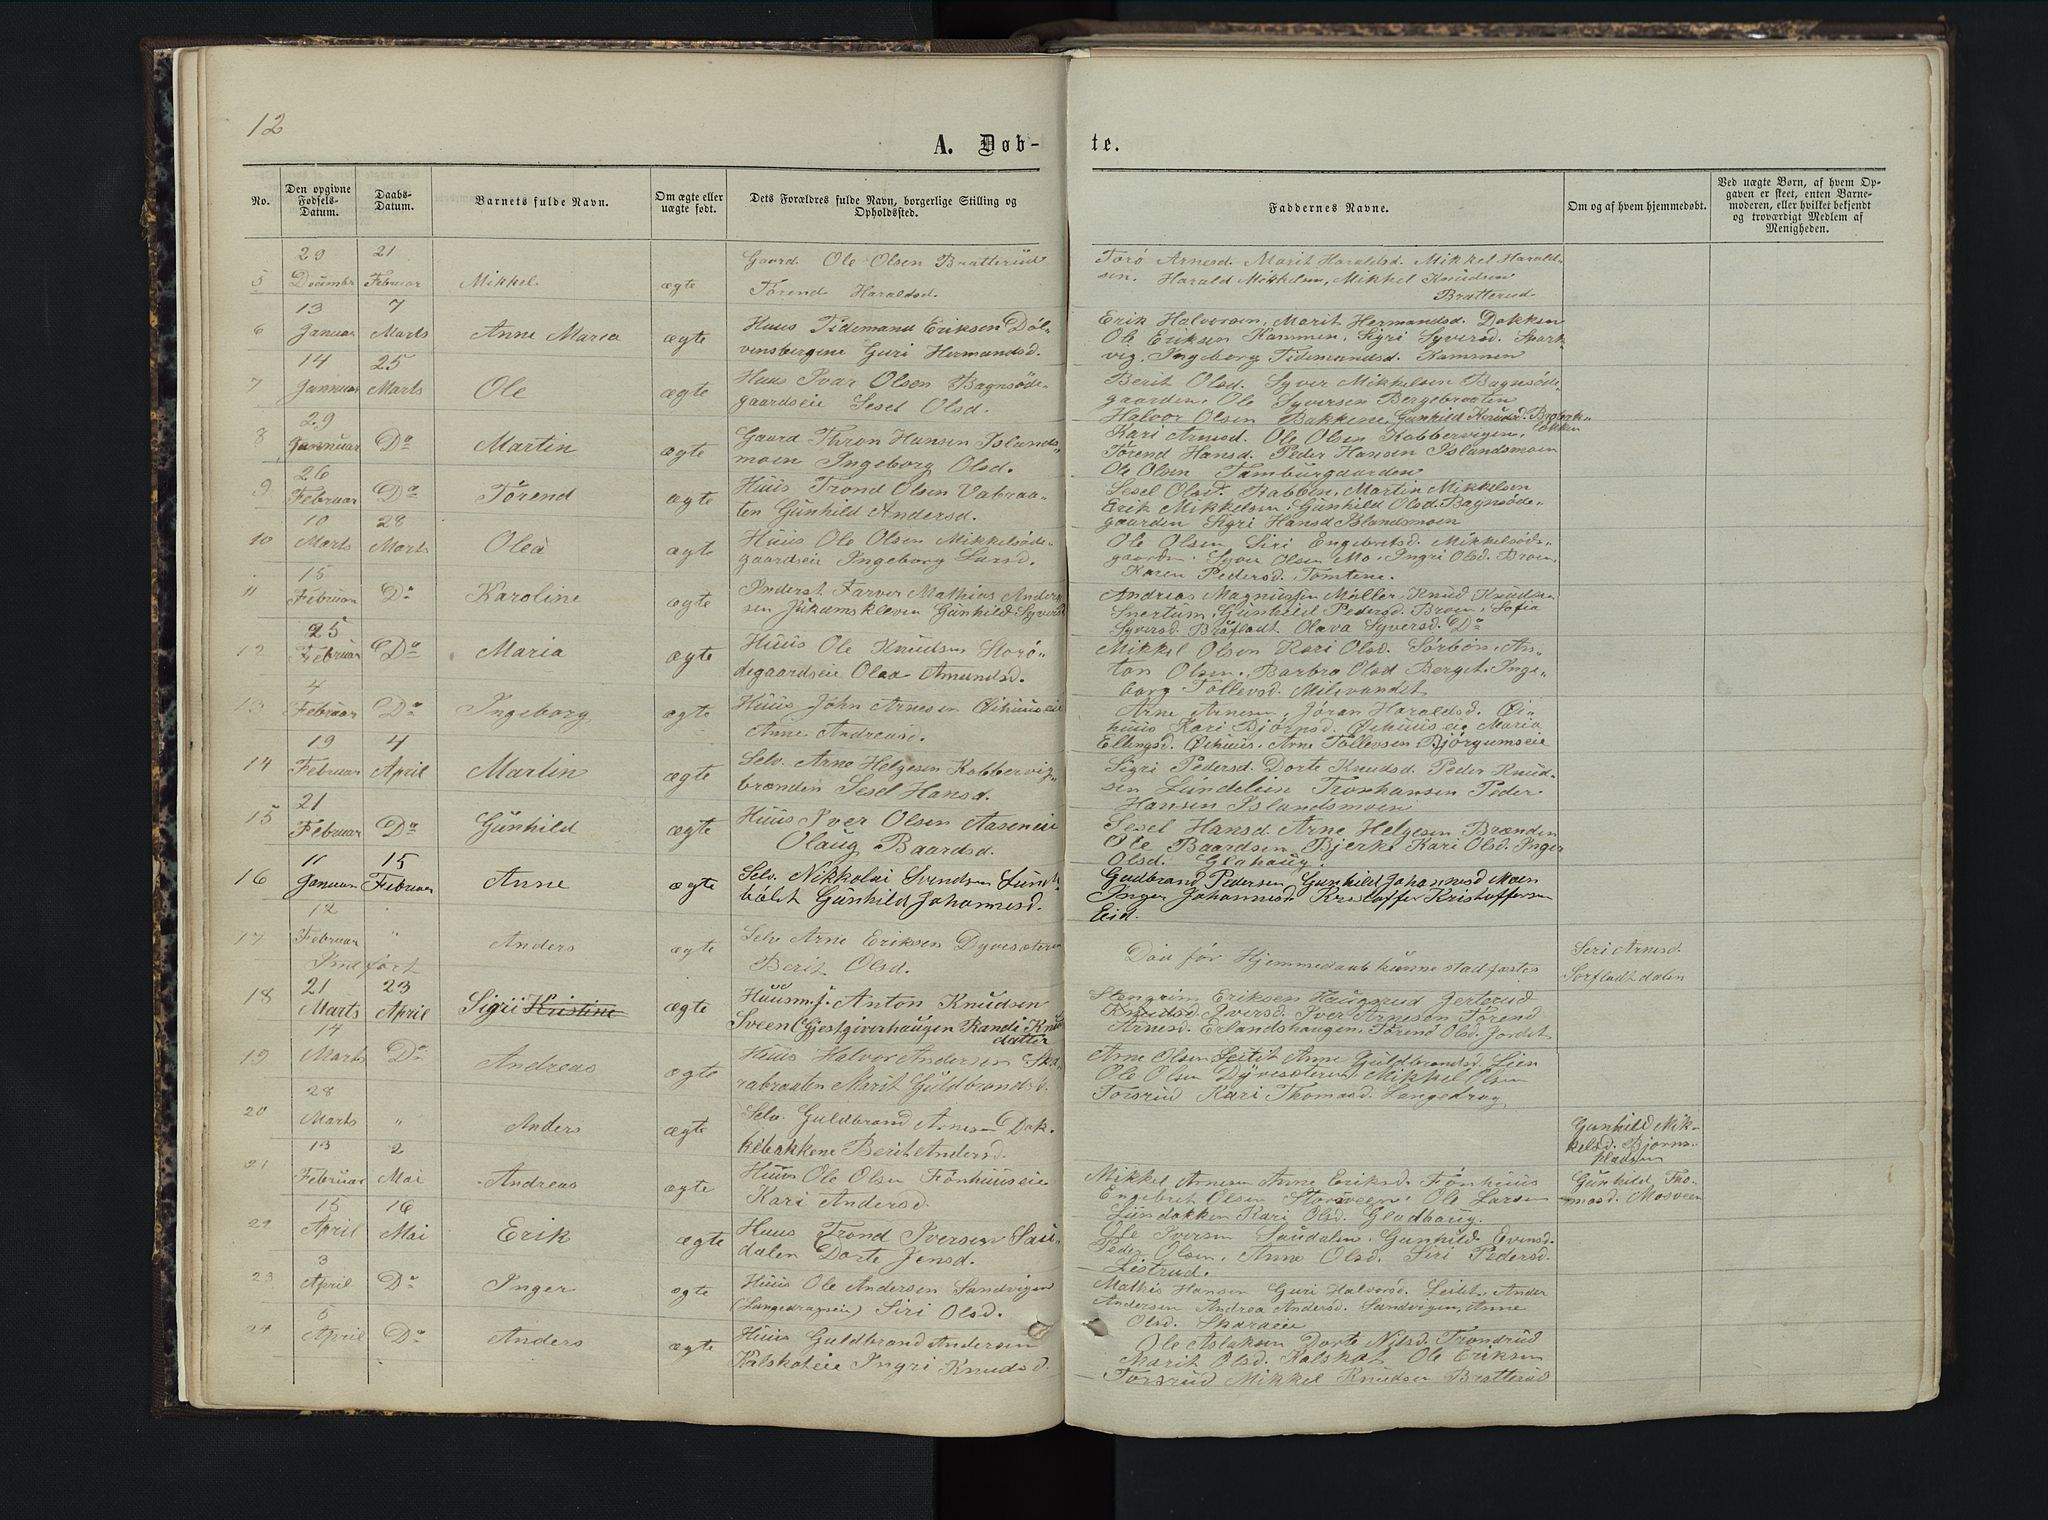 12
A. Døb-
te.
No.
Den opgivne Fødsels-Datum.
Daabs-Datum.
Barnets fulde Navn.
Om ægte eller uægte født.
Dets Forældres fulde Navn, borgerlige Stilling og Opholdssted.
Faddernes Navne.
Om og af hvem hjemmedøbt.
Ved uægte Børn, af hvem Op-
gaven er skeet, enten Barne-
moderen, eller hvilket bekjendt
og troværdigt Medlem af
Menigheden.
5 29 December 21 Februar Mikkel ægte
Gaard. Ole Olsen Bratterud
Tørend Haraldsd.
Torö Arnesd. Marit Haraldsd. Mikkel Harald-
sen. Harald Mikkelsen, Mikkel Knudsen
Bratterud
6 13 Januar 7 Marts Anne Maria ægte
Huus Tidemand Eriksen Döl-
vensbergene Guri Hermandsd.
Erik Halvorsen, Marit Hermandsd. Dokken
Ole Eriksen Kammen, Sigri Syversd. Stork-
vig, Ingeborg Tidemandsd. Kammen
7 14 Januar 25 Marts Ole ægte
Huus Ivar Olsen Bagnsöde-
gaardseie Sesel Olsd.
Berit Olsd. Syver Mikkelsen Bagnsöde-
gaarden, Ole Syversen Bergebraaten
Halvor Olsen Bakkene, Gunhild Knudsd.
8 29 Januar Do Martin ægte
Gaard Thron Hansen Islands-
moen Ingeborg Olsd.
Kari Arnesd. Ole Olsen Kobbervigen,
Tørend Hansd. Peder Hansen Islandsmoen
Ole Olsen Tamburgaarden
9 26 Februar Do Törend ægte
Huus Trond Olsen Vabraa-
ten Gunhild Andersd.
Sesel Olsd. Babben, Martin Mikkelsen
Erik Mikkelsen, Gunhild Olsd. Bagnsöde-
gaarden Sigri Hansd Islandsmoen
10 10 Marts 28 Marts Olea ægte
Huus Ole Olsen Mikkelsöde-
gaardseie Ingeborg Larsd.
Ole Olsen, Siri Engebretsd. Mikkelsöde-
gaarden. Syver Olsen Mo. Ingri Olsd. Broen,
Karen Pedersd. Tomtene.
11 15 Februar Do Karoline ægte
Inderst Farver Mathias Ander-
sen Gunhild Syversd
Andreas Magnussen Möller, Knud Knudsen
Snertum, Gunhild Pedersd. Broen, Sofia
Syversd. Bråfladt Olava Syversd. Do
12 25 Februar Do Maria ægte
Huus Ole Knudsen Storö-
degaardseie Olea Amundsd.
Mikkel Olsen Kari Olsd. Sörbön, An-
ton Olsen, Barbra Olsd Berget, Inge-
borg Tollevsd. Milevandet
13 4 Februar Do Ingeborg ægte
Huus John Arnesen Öihuuseie
Anne Andreasd.
Arne Arnesen, Jöran Haraldsd. Öi-
huus Kari Björnsd. Öihuuseie Maria
Ellingsd. Öihuus. Arne Tollevsen Björgumseie
14 19 Februar 4 April Martin ægte
Selv. Arne Helgesen Kobbervig-
brænden Sesel Hansd.
Sigri Pedersd. Dorte Knudsd. Peder Knud-
sen Lundelein Tronhansen Peder
Hansen Islandsmoen
15 21 Februar Do Gunhild ægte
Huus Iver Olsen Aaseneie
Olaug Baardsd.
Sesel Hansd. Arne Helgesen Brænden
Ole Baardsen, Bjerke Kari Olsd. Inger
Olsd. Glahaug.
16 11 Januar 15 Februar Anne ægte
Selv. Nikkolai Svendsen Lund-
Gunhild Johannesd.
Gudbrand Pedersen Gunhild Johannesd Moen
Inger Johannesd. Kristoffer Kristoffersen
Eid.
17 12 Februar " Anders ægte
Indfört
Selv Arne Eriksen Dyvesæteren
Berit Olsd.
Död för Hjemmedaab kunne stadfæstes
Siri Arnesd.
Sorfladtdalen
18 21 Marts 23 April Sigrii Kristine ægte
Huusm.f. Anton Knudsen
Sveen (Gjestgiverhaugen Randi Knuds
datter
Stengrim Eriksen Haugsrud Gjertrud
Knudsd. Iversd. Iver Arnesen Törend
Arnesd. Erlandshaugen. Törend Olsd. Jordet
19 14 Marts Do Andreas ægte
Huus Halvor Andersen Ska-
rabraaten Marit Guldbrandsd.
Arne Olsen Leitet Anne Guldbrandsd. Lien
Ole Olsen Dyvesæteren Mikkel Olsen
Forsrud Kari Thomasd. Langedrag
20 28 Marts " Anders ægte
Selv. Guldbrand Arnesen Dok-
kebakkene Berit Andersd.
Gunhild Mik-
kelsd. Bjørns-
pladsen
21 13 Februar 2 Mai Andreas ægte
Huus Ole Olsen Fönhuuseie
Kari Andersd.
Mikkel Arnesen Anne Eriksd. Fönhuus
Engebret Olsen Storsveen. Ole Larsen
Lundakken Kari Olsd. Gladhaug.
Gunhild Tho-
masd. Mosveen
22 15 April 16 Mai Erik ægte
Huus Trond Iversen Sau-
dalen Dorte Jensd.
Ole Iversen Saudalen, Gunhild Evensd.
Peder Olsen, Anne Olsd. Siri Pedersd.
Listrud.
23 3 April Do Inger ægte
Huus Ole Andersen Sandvigen
(Langedrageie) Siri Olsd.
Mathis Hansen Guri Halvorsd. Leitet, Ander
Andersen Andrea Andersd. Sandvigen, Anne
Olsd. Skaraeie
24 6 April Do Anders ægte
Huus Guldbrand Andersen
Kalskoteie Ingri Knudsd.
Ole Aslaksen Dorte Nilsd. Trondrud
Marit Olsd. Kalskot Ole Eriksen
Forsrud Mikkel Knudsen Bratterud